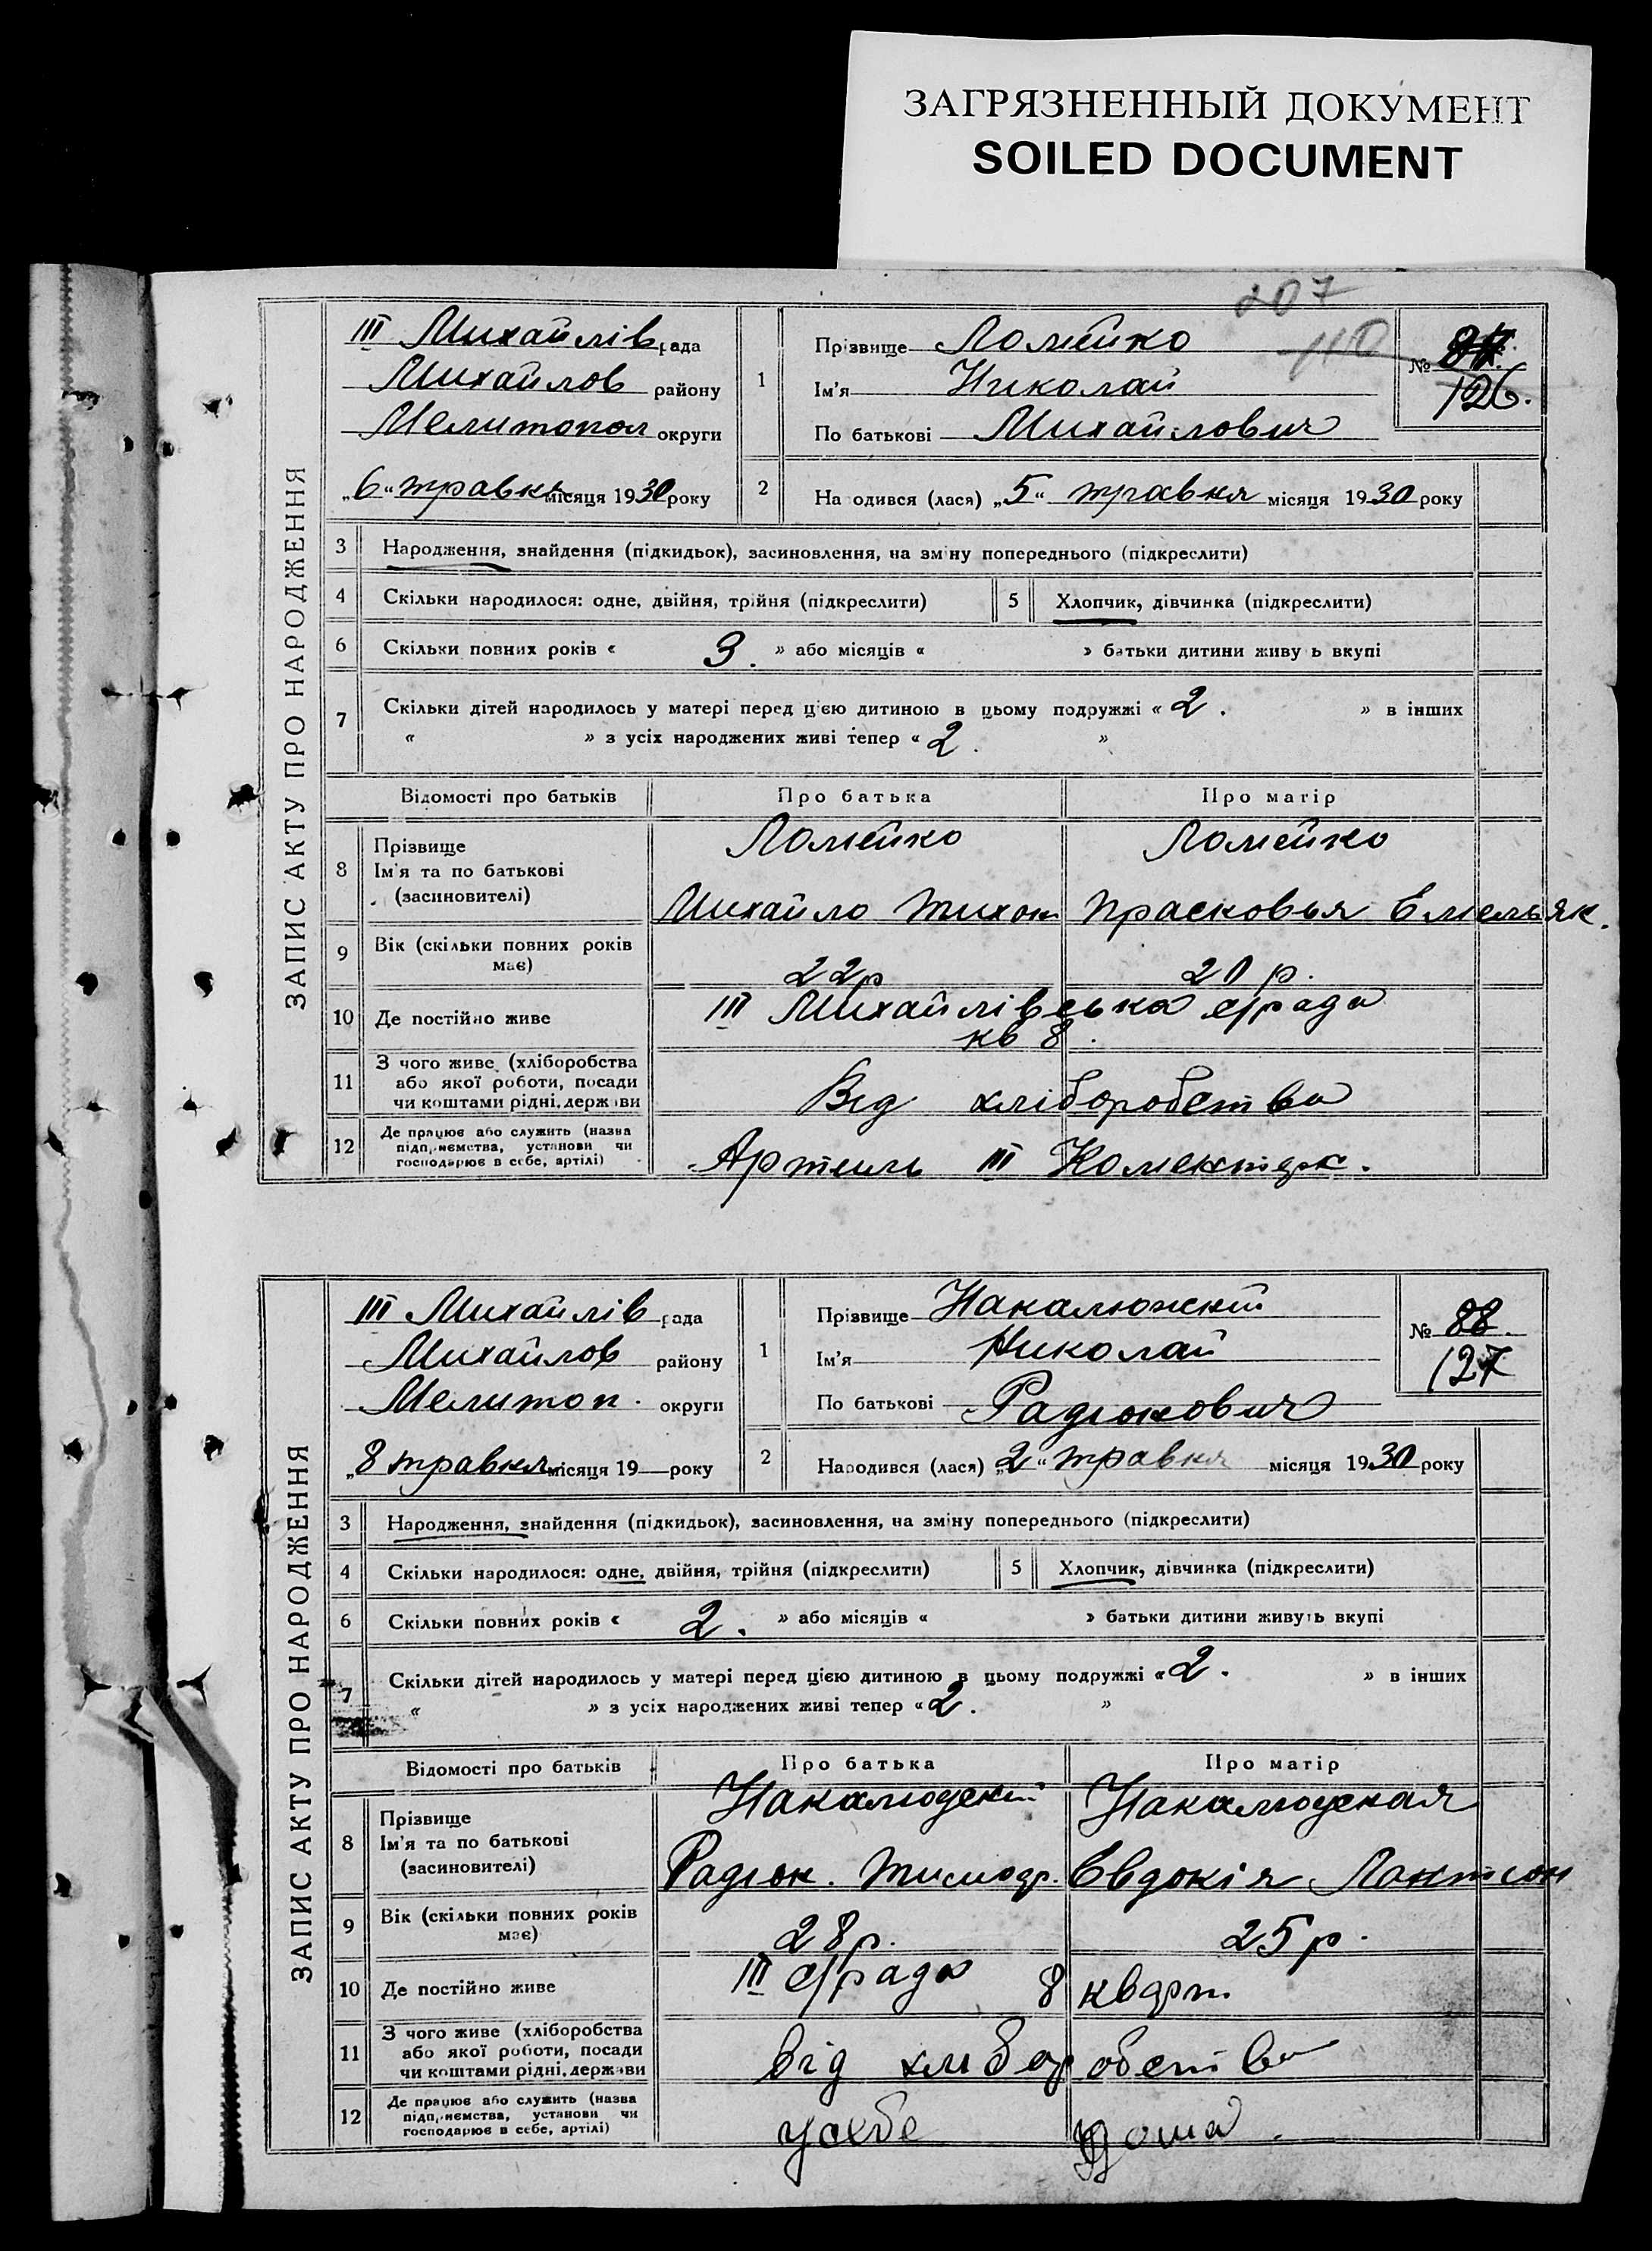 ЗАГРЯЗНЕННЫЙ ДОКУМЕНТ
SOILED DOCUMENT
207
110
ЗАПИС АКТУ ПРО НАРОДЖЕННЯ
ІІІ Михайлів рада
Михайлов району
Мелитопол округи
„6" травня місяця 1930 року
1
Прізвище Ломейко
Ім'я Николай
По батькові Михайлович
№ 87.
126.
2 На одився (лася) „5" травня місяця 1930 року
3 Народження, знайдення (підкидьок), засиновлення, на зміну попереднього (підкреслити)
4 Скільки народилося: одне, двійня, трійня (підкреслити) 5 Хлопчик, дівчинка (підкреслити)
6 Скільки повних років « 3. » або місяців « » батьки дитини живу ь вкупі
7 Скільки дітей народилось у матері перед цією дитиною в цьому подружжі « 2. » в інших
« » з усіх народжених живі тепер « 2. »
Відомості про батьків Про батька Про матір
8 Прізвище
Ім'я та по батькові
(засиновителі)
Ломейко Ломейко
Михайло Тихон Прасковья Емельян.
9 Вік (скільки повних років має) 22р 20 р.
10 Де постійно живе ІІІ Михайлівська с/рада
кв 8.
11 З чого живе (хліборобства
або якої роботи, посади
чи коштами рідні, держави
Від хліборобства
12 Де працює або служить (назва
підприємства, установи чи
господарює в себе, артілі)
Артиль ІІІ
ЗАПИС АКТУ ПРО НАРОДЖЕННЯ
ІІІ Михайлів рада
Михайлов району
Мелитоп. округи
„8 травня місяця 19 року
1
Прізвище
Ім'я Николай
По батькові Радионович
№ 88.
127
2 Народився (лася) „2" травня місяця 1930 року
3 Народження, знайдення (підкидьок), засиновлення, на зміну попереднього (підкреслити)
4 Скільки народилося: одне, двійня, трійня (підкреслити) 5 Хлопчик, дівчинка (підкреслити)
6 Скільки повних років « 2. » або місяців « » батьки дитини живуть вкупі
7 Скільки дітей народилось у матері перед цією дитиною в цьому подружжі « 2. » в інших
« » з усіх народжених живі тепер « 2. »
Відомості про батьків Про батька Про матір
8 Прізвище
Ім'я та по батькові
(засиновителі)
Радион. Евдокія
9 Вік (скільки повних років має) 28р. 25 р.
10 Де постійно живе ІІІ с/рада 8 кварт
11 З чого живе (хліборобства
або якої роботи, посади
чи коштами рідні, держави
Від хліборобства
12 Де працює або служить (назва
підприємства, установи чи
господарює в себе, артілі)
усебе дома.